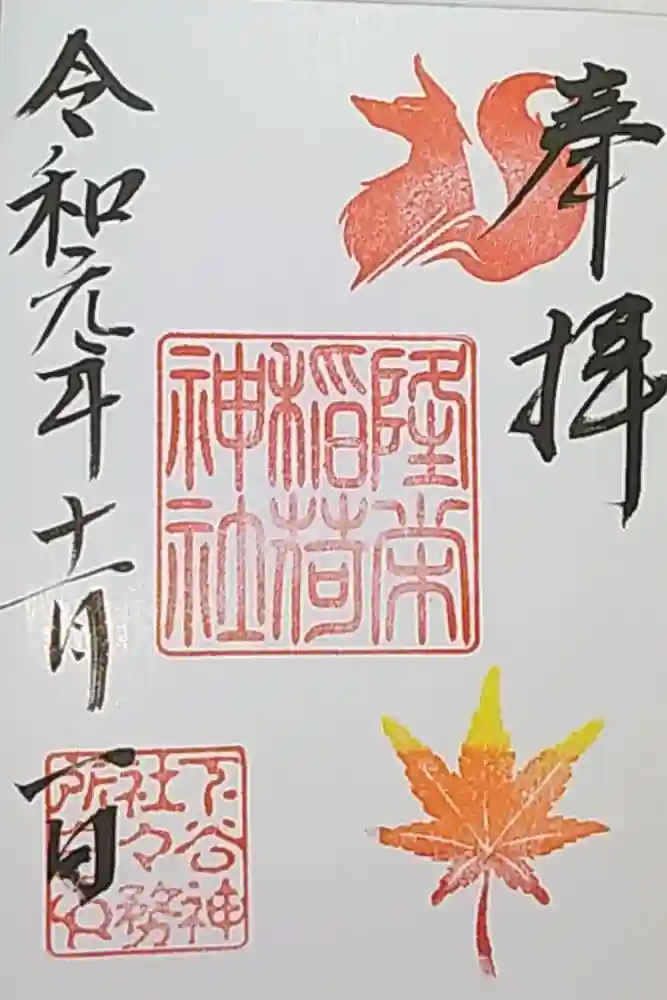 奉拝
隆栄
稲荷
神社
令和元年十一月一日
下谷神
社々務
所印